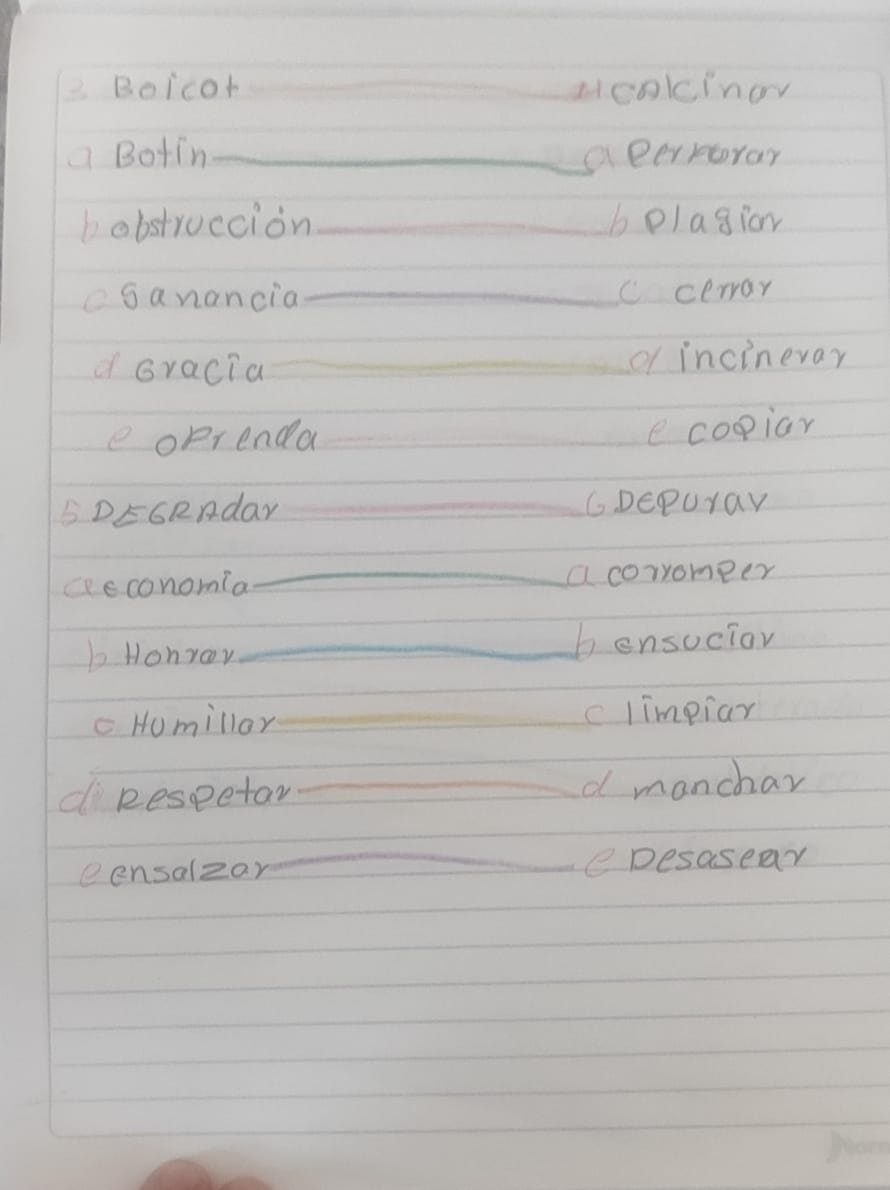 3 Boicot 4 calcinar
a Botín a Perforar
b obstrucción b Plagiar
c Ganancia c cerrar
d Gracia d incinerar
e ofrenda e copiar
5 DEGRAdar 6 DEPURAr
a economía a corromper
b Honrar b ensuciar
c Humillar c limpiar
d Respetar d manchar
e ensalzar e Desasear